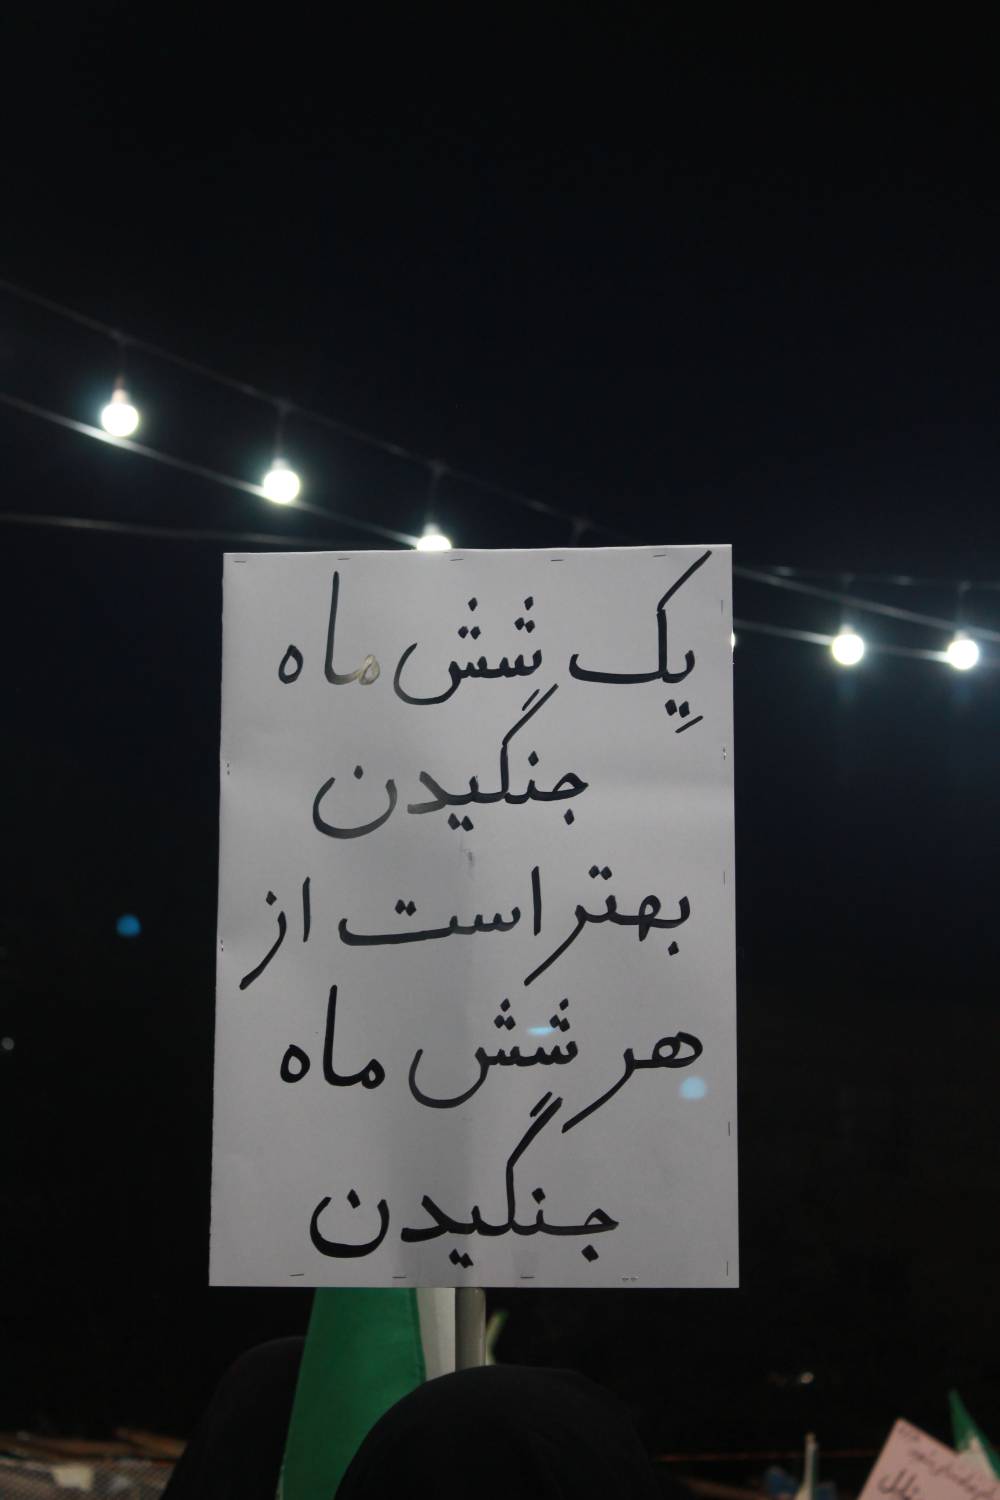 یِک شش ماه
جنگیدن
بهتر است از
هر شش ماه
جنگیدن